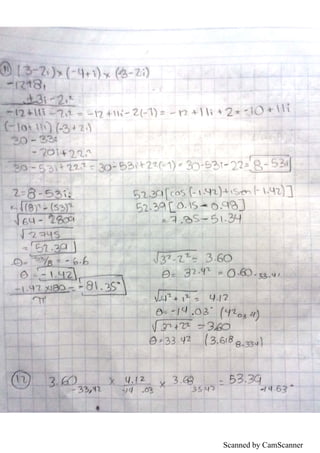 11) (3-2i)x(-4+i)x(-3-2i)
-12+8i
+3i-2i²
-12+11i-2i² = -12+11i-2(-1) = -12+11i+2 = -10+11i
(-10+11i)(-3+2i)
30-33i
-20i+22i²
30-53i+22i² = 30-53i+22(-1) = 30-53i-22 = 8-53i
z=8-53i
√(8)²-(53)²
√64-2809
√2745
= 52.39
θ= 53/8 = -6.6
θ = -1.42
-1.42x180 = -81.35°
π
52.39[cos(-1.42)+isen(-1.42)]
52.39[0.15-0.98]
=7.85-51.34
√3²-2² = 3.60
θ= 32.42 = 0.60
√4²+1² = 4.12
θ=-14.03°
√3²+2² = 3.60
θ=33.42
12) 3.60 -33.42 x 4.12 -14.03 x 3.60 33.42 = 53.39 -14.63
Scanned by CamScanner